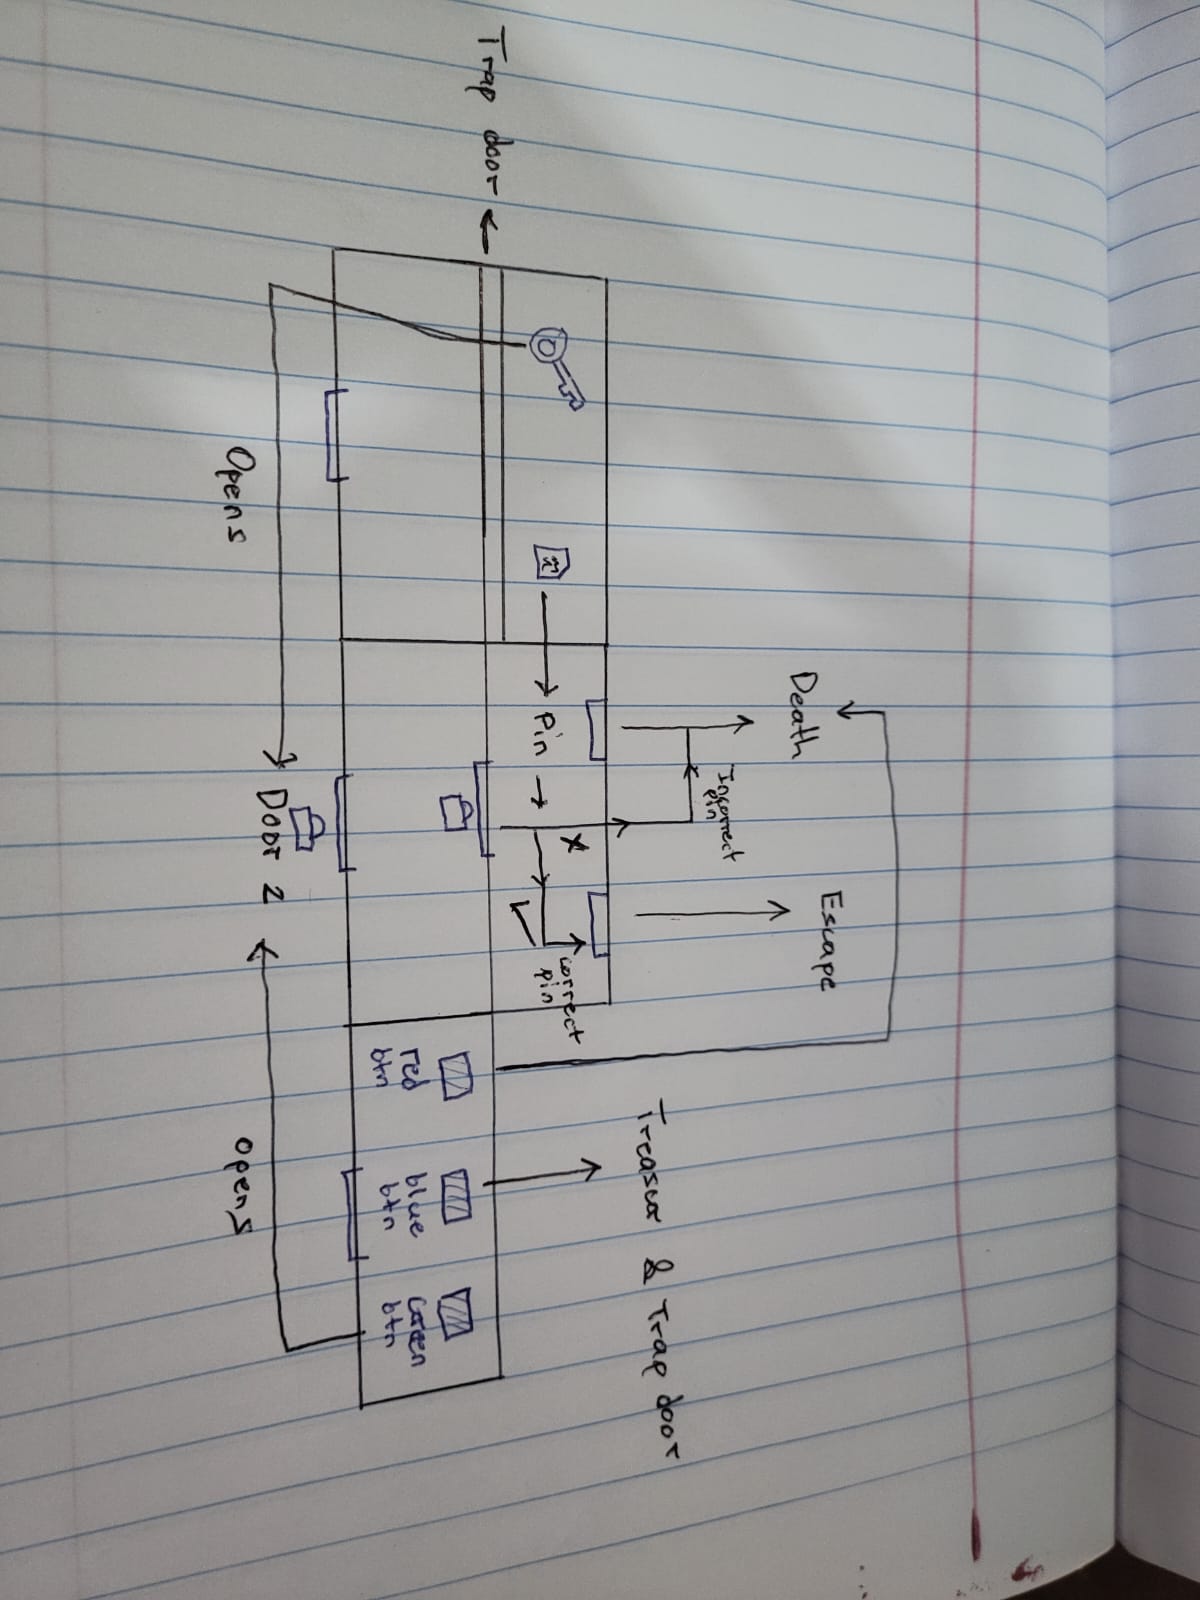 Escape
Death
Incorrect
pin
Treascor & Trap door
x
correct
pin
Pin
Trap door
red
btn
blue
btn
Green
btn
Door 2
Opens
opens